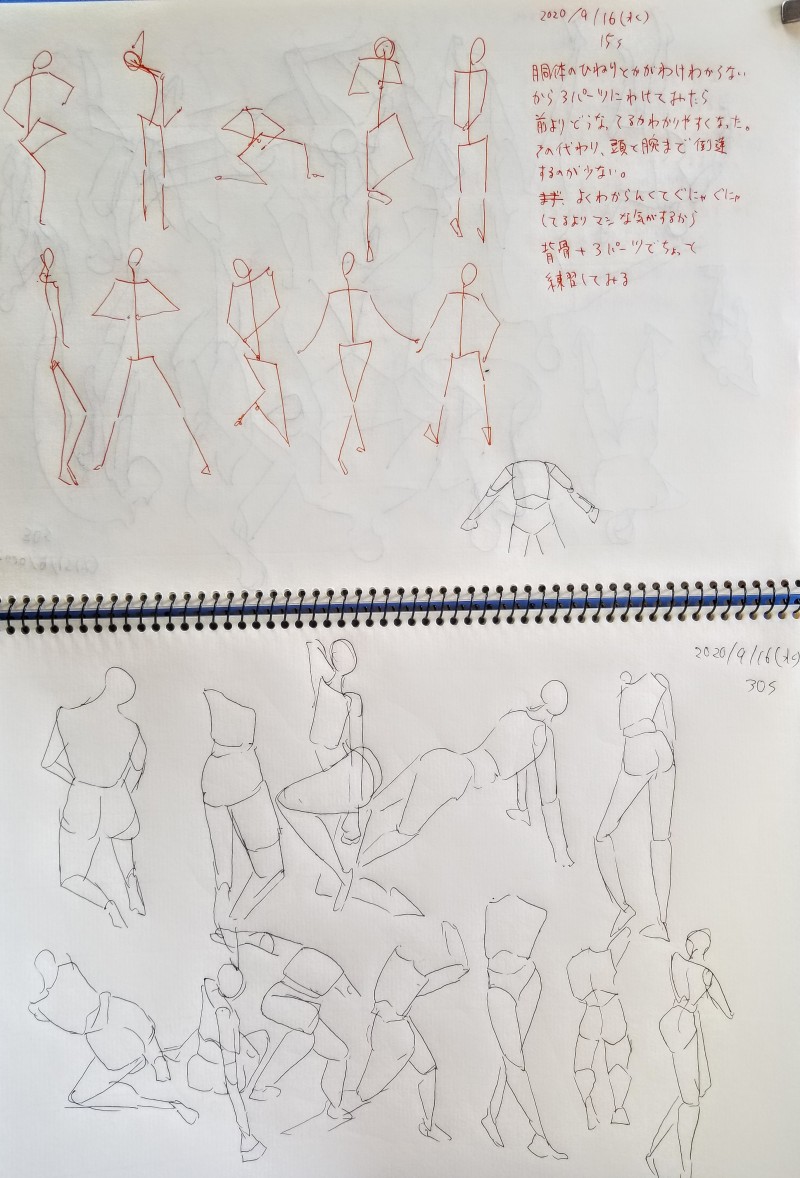 2020/9/16(水)
15s
胴体のひねりとかがわけわからない
から3パーツにわけてみたら
前よりどうなってるかわかりやすくなった。
その代わり、頭と腕まで到達
するのが少ない。
まず、よくわからんくてぐにゃぐにゃ
してるよりマシな気がするから
背骨+3パーツでちょっと
練習してみる
2020/9/16(水)
30s